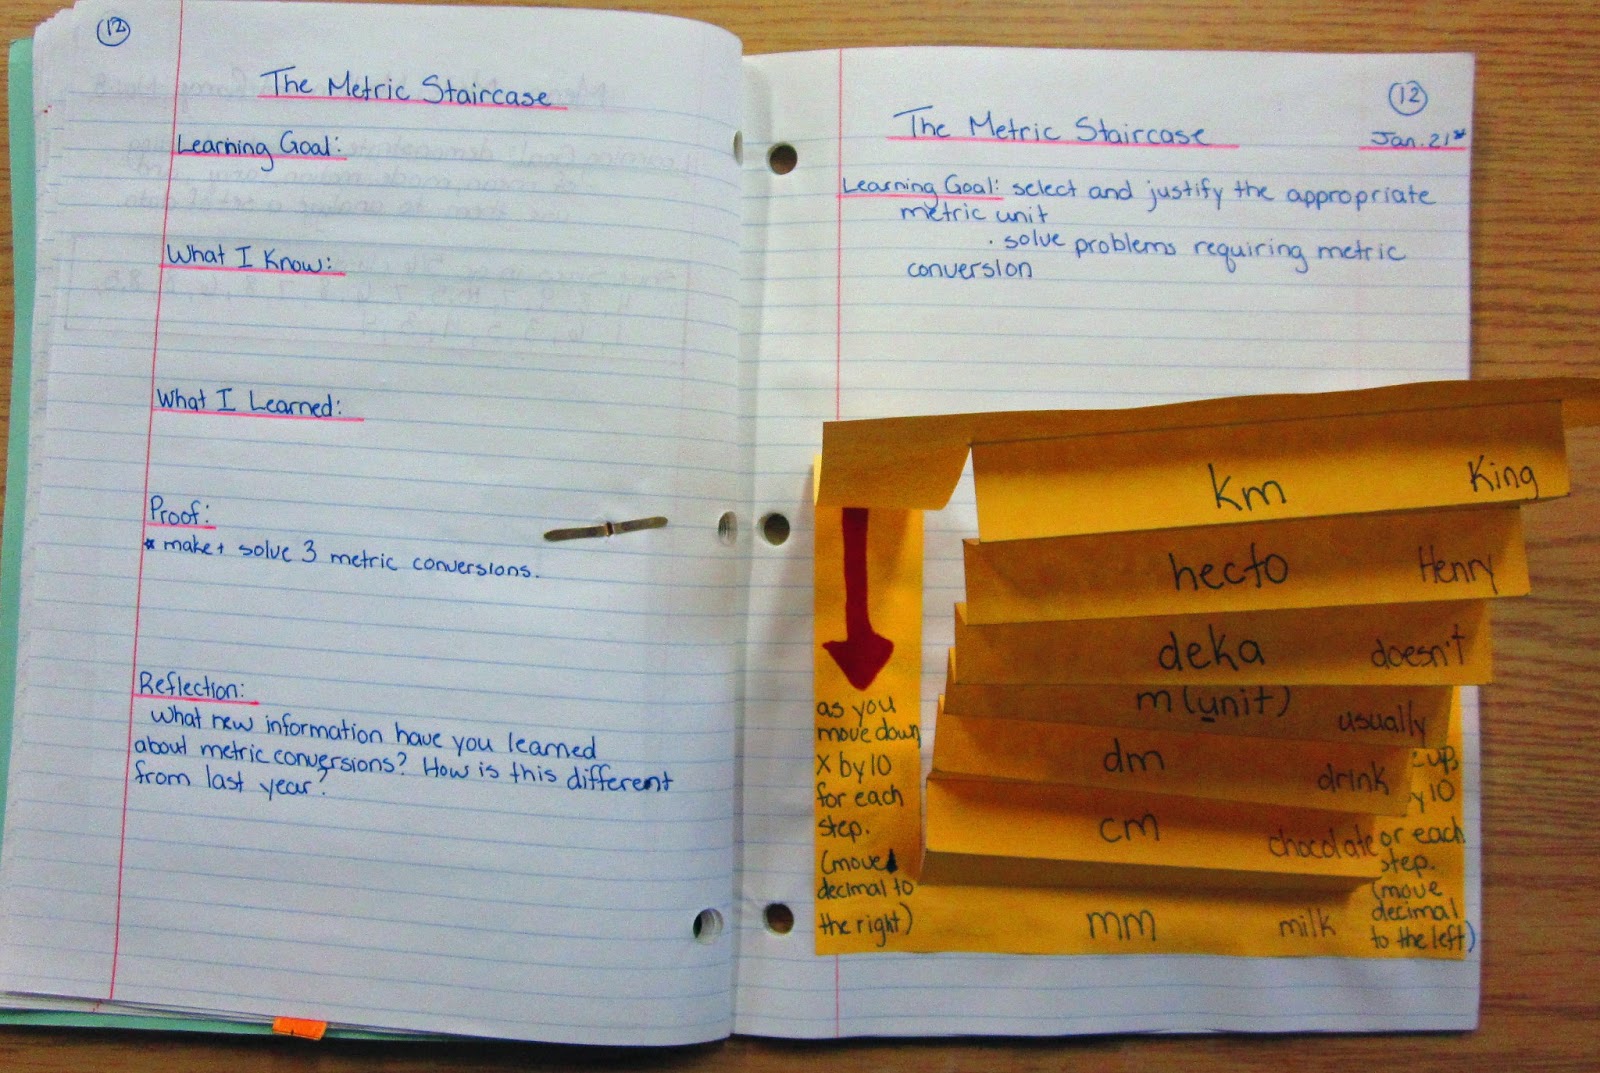 12
The Metric Staircase
Learning Goal:
What I Know:
What I Learned:
Proof:
* make + solve 3 metric conversions.
Reflection:
What new information have you learned
about metric conversions? How is this different
from last year?
12
The Metric Staircase
Jan. 21st
Learning Goal: select and justify the appropriate
metric unit
· solve problems requiring metric
conversion
km King
hecto Henry
deka doesn't
m (unit) usually
dm drink
cm chocolate
mm milk
as you
move down
x by 10
for each
step.
(move
decimal to
the right)
up,
by 10
or each
step.
(move
decimal
to the left)